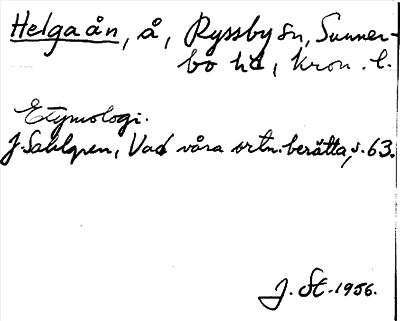 Helgaån, å, Ryssby sn, Sunner-
bo hd, Kron. l.
Etymologi.
J. Sahlgren, Vad våra ortn. berätta, s. 63.
J. St. 1956.